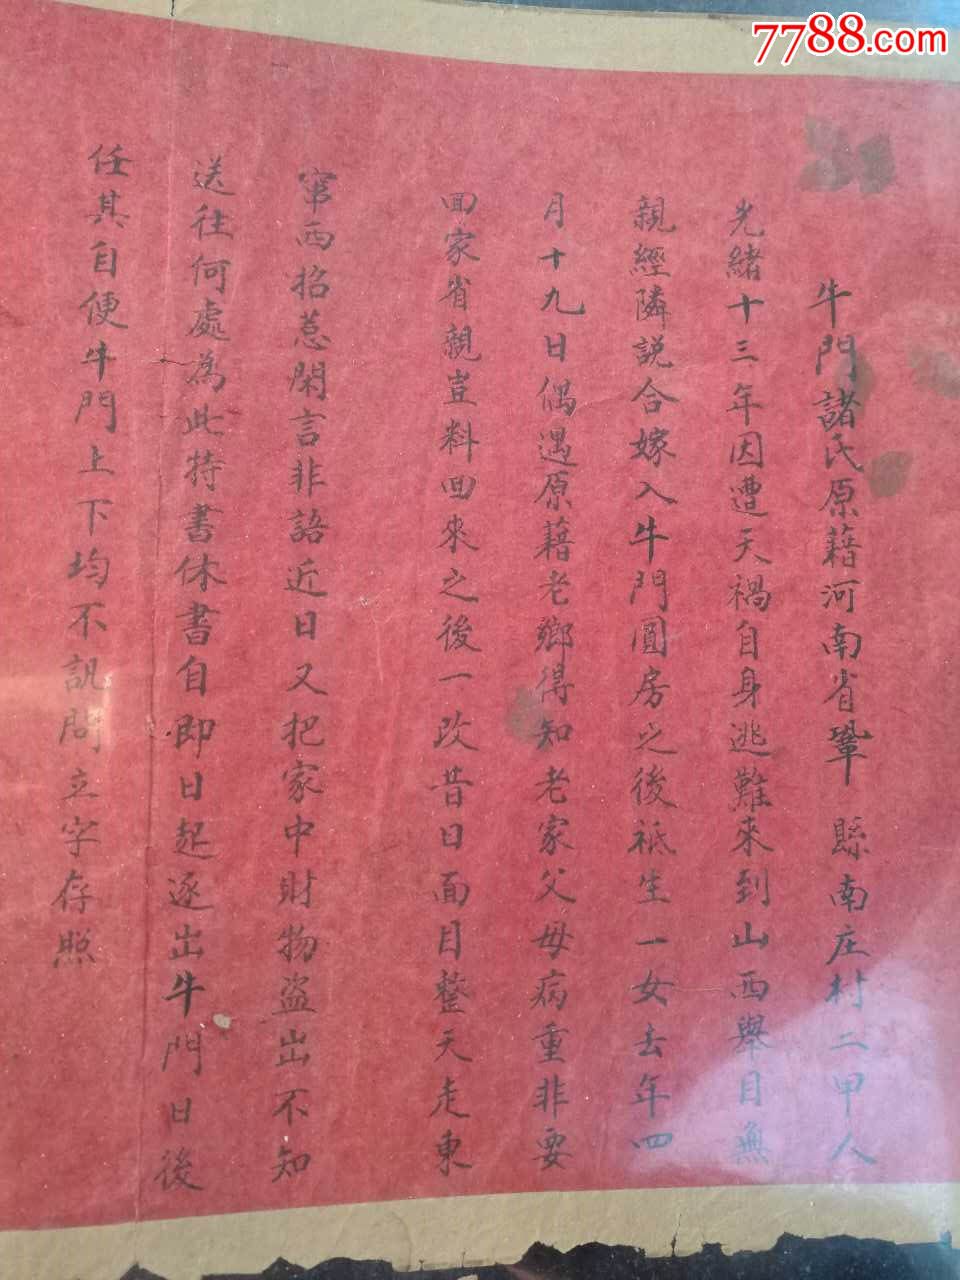 7788.com
牛門諸氏原藉河南省鞏縣南庄村二甲人
光緒十三年因遭天禍自身逃難來到山西舉目無
親經隣説合嫁入牛門圓房之後祗生一女去年四
月十九日偶遇原藉老鄉得知老家父母病重非要
回家省親豈料回來之後一改昔日面目整天走東
窜西招惹閑言非語近日又把家中財物盗出不知
送往何處為此特書休書自即日起逐出牛門日後
任其自便牛門上下均不訊問立字存照